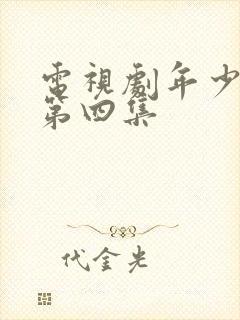 電視劇年少
第四集
代金光